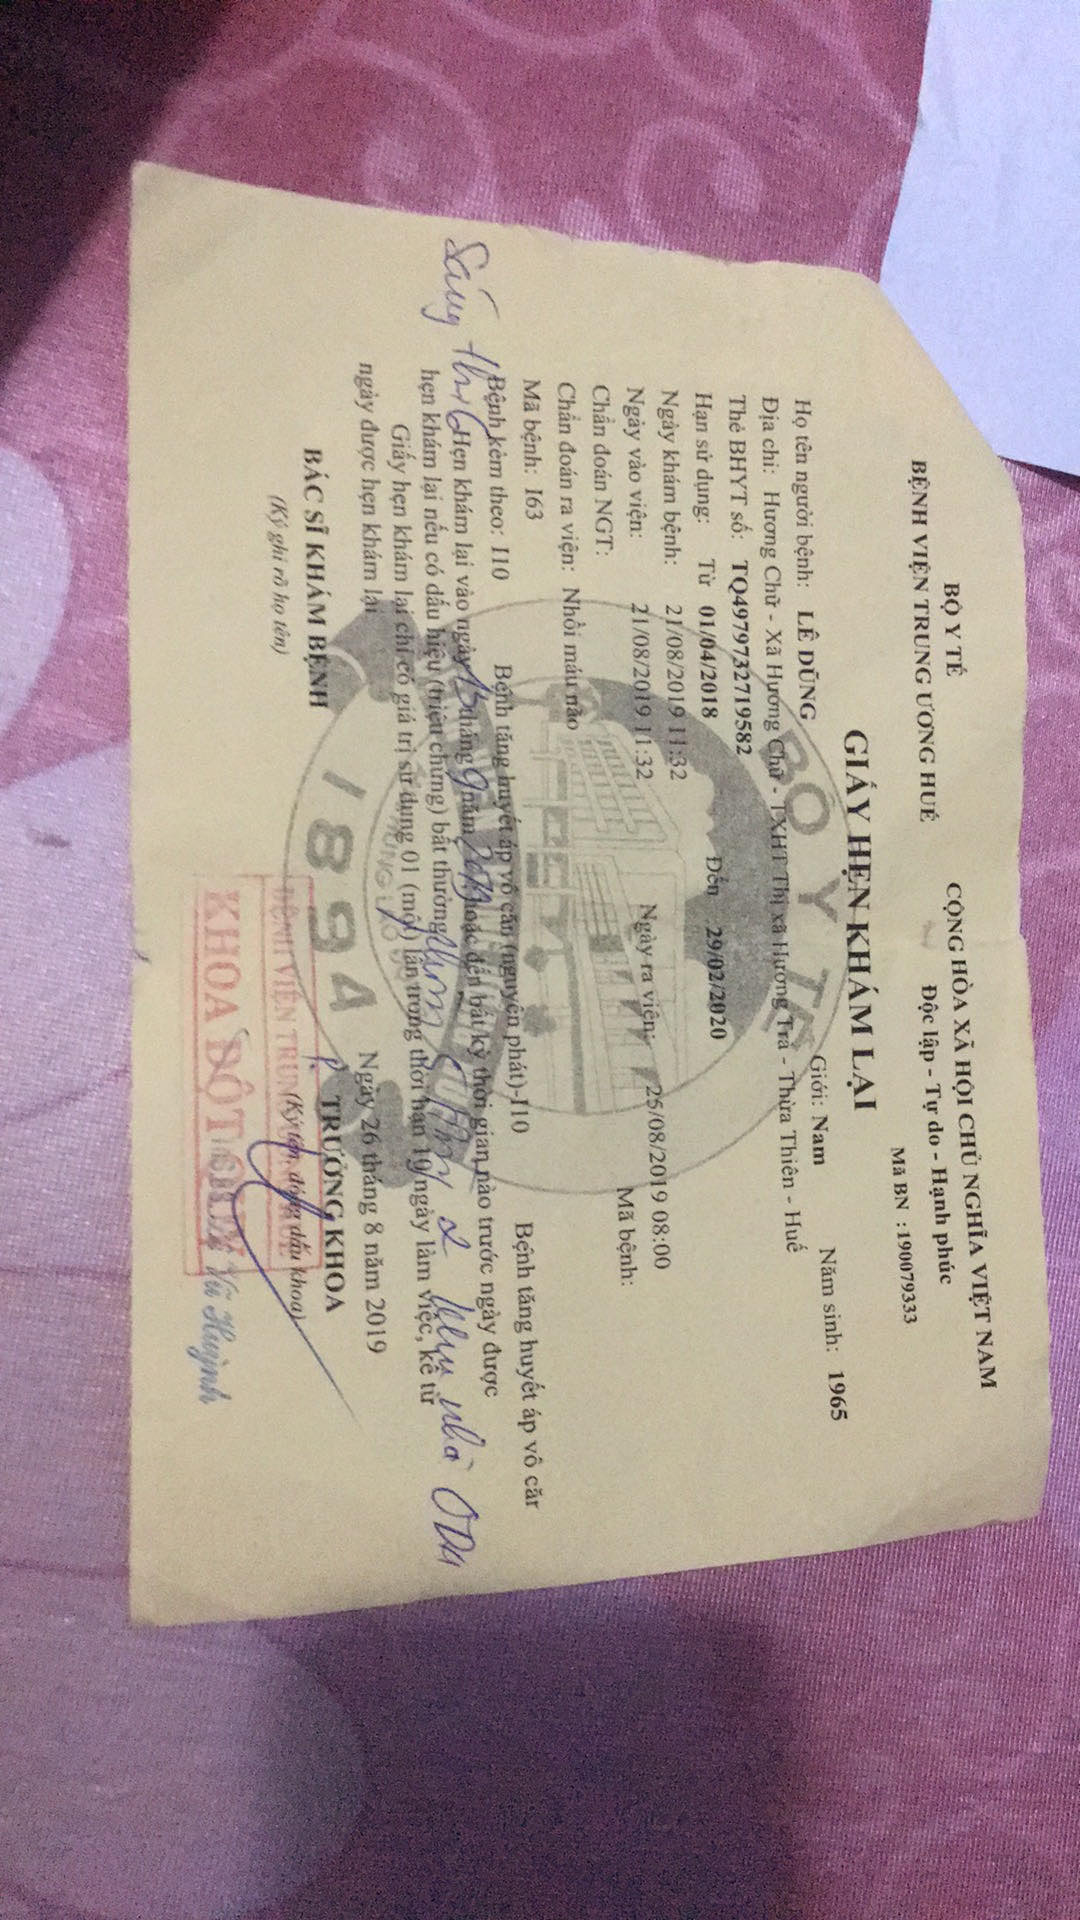 BỘ Y TẾ
BỆNH VIỆN TRUNG ƯƠNG HUẾ
CỘNG HÒA XÃ HỘI CHỦ NGHĨA VIỆT NAM
Độc lập - Tự do - Hạnh phúc
Mã BN : 190079333
GIẤY HẸN KHÁM LẠI
Họ tên người bệnh: LÊ DŨNG Giới: Nam Năm sinh: 1965
Địa chỉ: Hương Chữ - Xã Hương Chữ - TXHT Thị xã Hương Trà - Thừa Thiên - Huế
Thẻ BHYT số: TQ4979732719582
Hạn sử dụng: Từ 01/04/2018 Đến 29/02/2020
Ngày khám bệnh: 21/08/2019 11:32
Ngày vào viện: 21/08/2019 11:32 Ngày ra viện: 25/08/2019 08:00
Chẩn đoán NGT: Mã bệnh:
Chẩn đoán ra viện: Nhồi máu não
Mã bệnh: I63
Bệnh kèm theo: I10 Bệnh tăng huyết áp vô căn (nguyên phát)-I10 Bệnh tăng huyết áp vô căn
Sáng thứ 6 Hẹn khám lại vào ngày 13 tháng 9 năm 2019 hoặc đến bất kỳ thời gian nào trước ngày được
hẹn khám lại nếu có dấu hiệu (triệu chứng) bất thường. nhà
Giấy hẹn khám lại chỉ có giá trị sử dụng 01 (một) lần trong thời hạn 10 ngày làm việc, kể từ
ngày được hẹn khám lại.
Ngày 26 tháng 8 năm 2019
BÁC SĨ KHÁM BỆNH
(Ký ghi rõ họ tên)
TRƯỞNG KHOA
(Ký tên, đóng dấu khoa)
BỆNH VIỆN TRUNG
KHOA ĐỘT QUỴ
Vũ Huỳnh
BỘ Y TẾ
1894